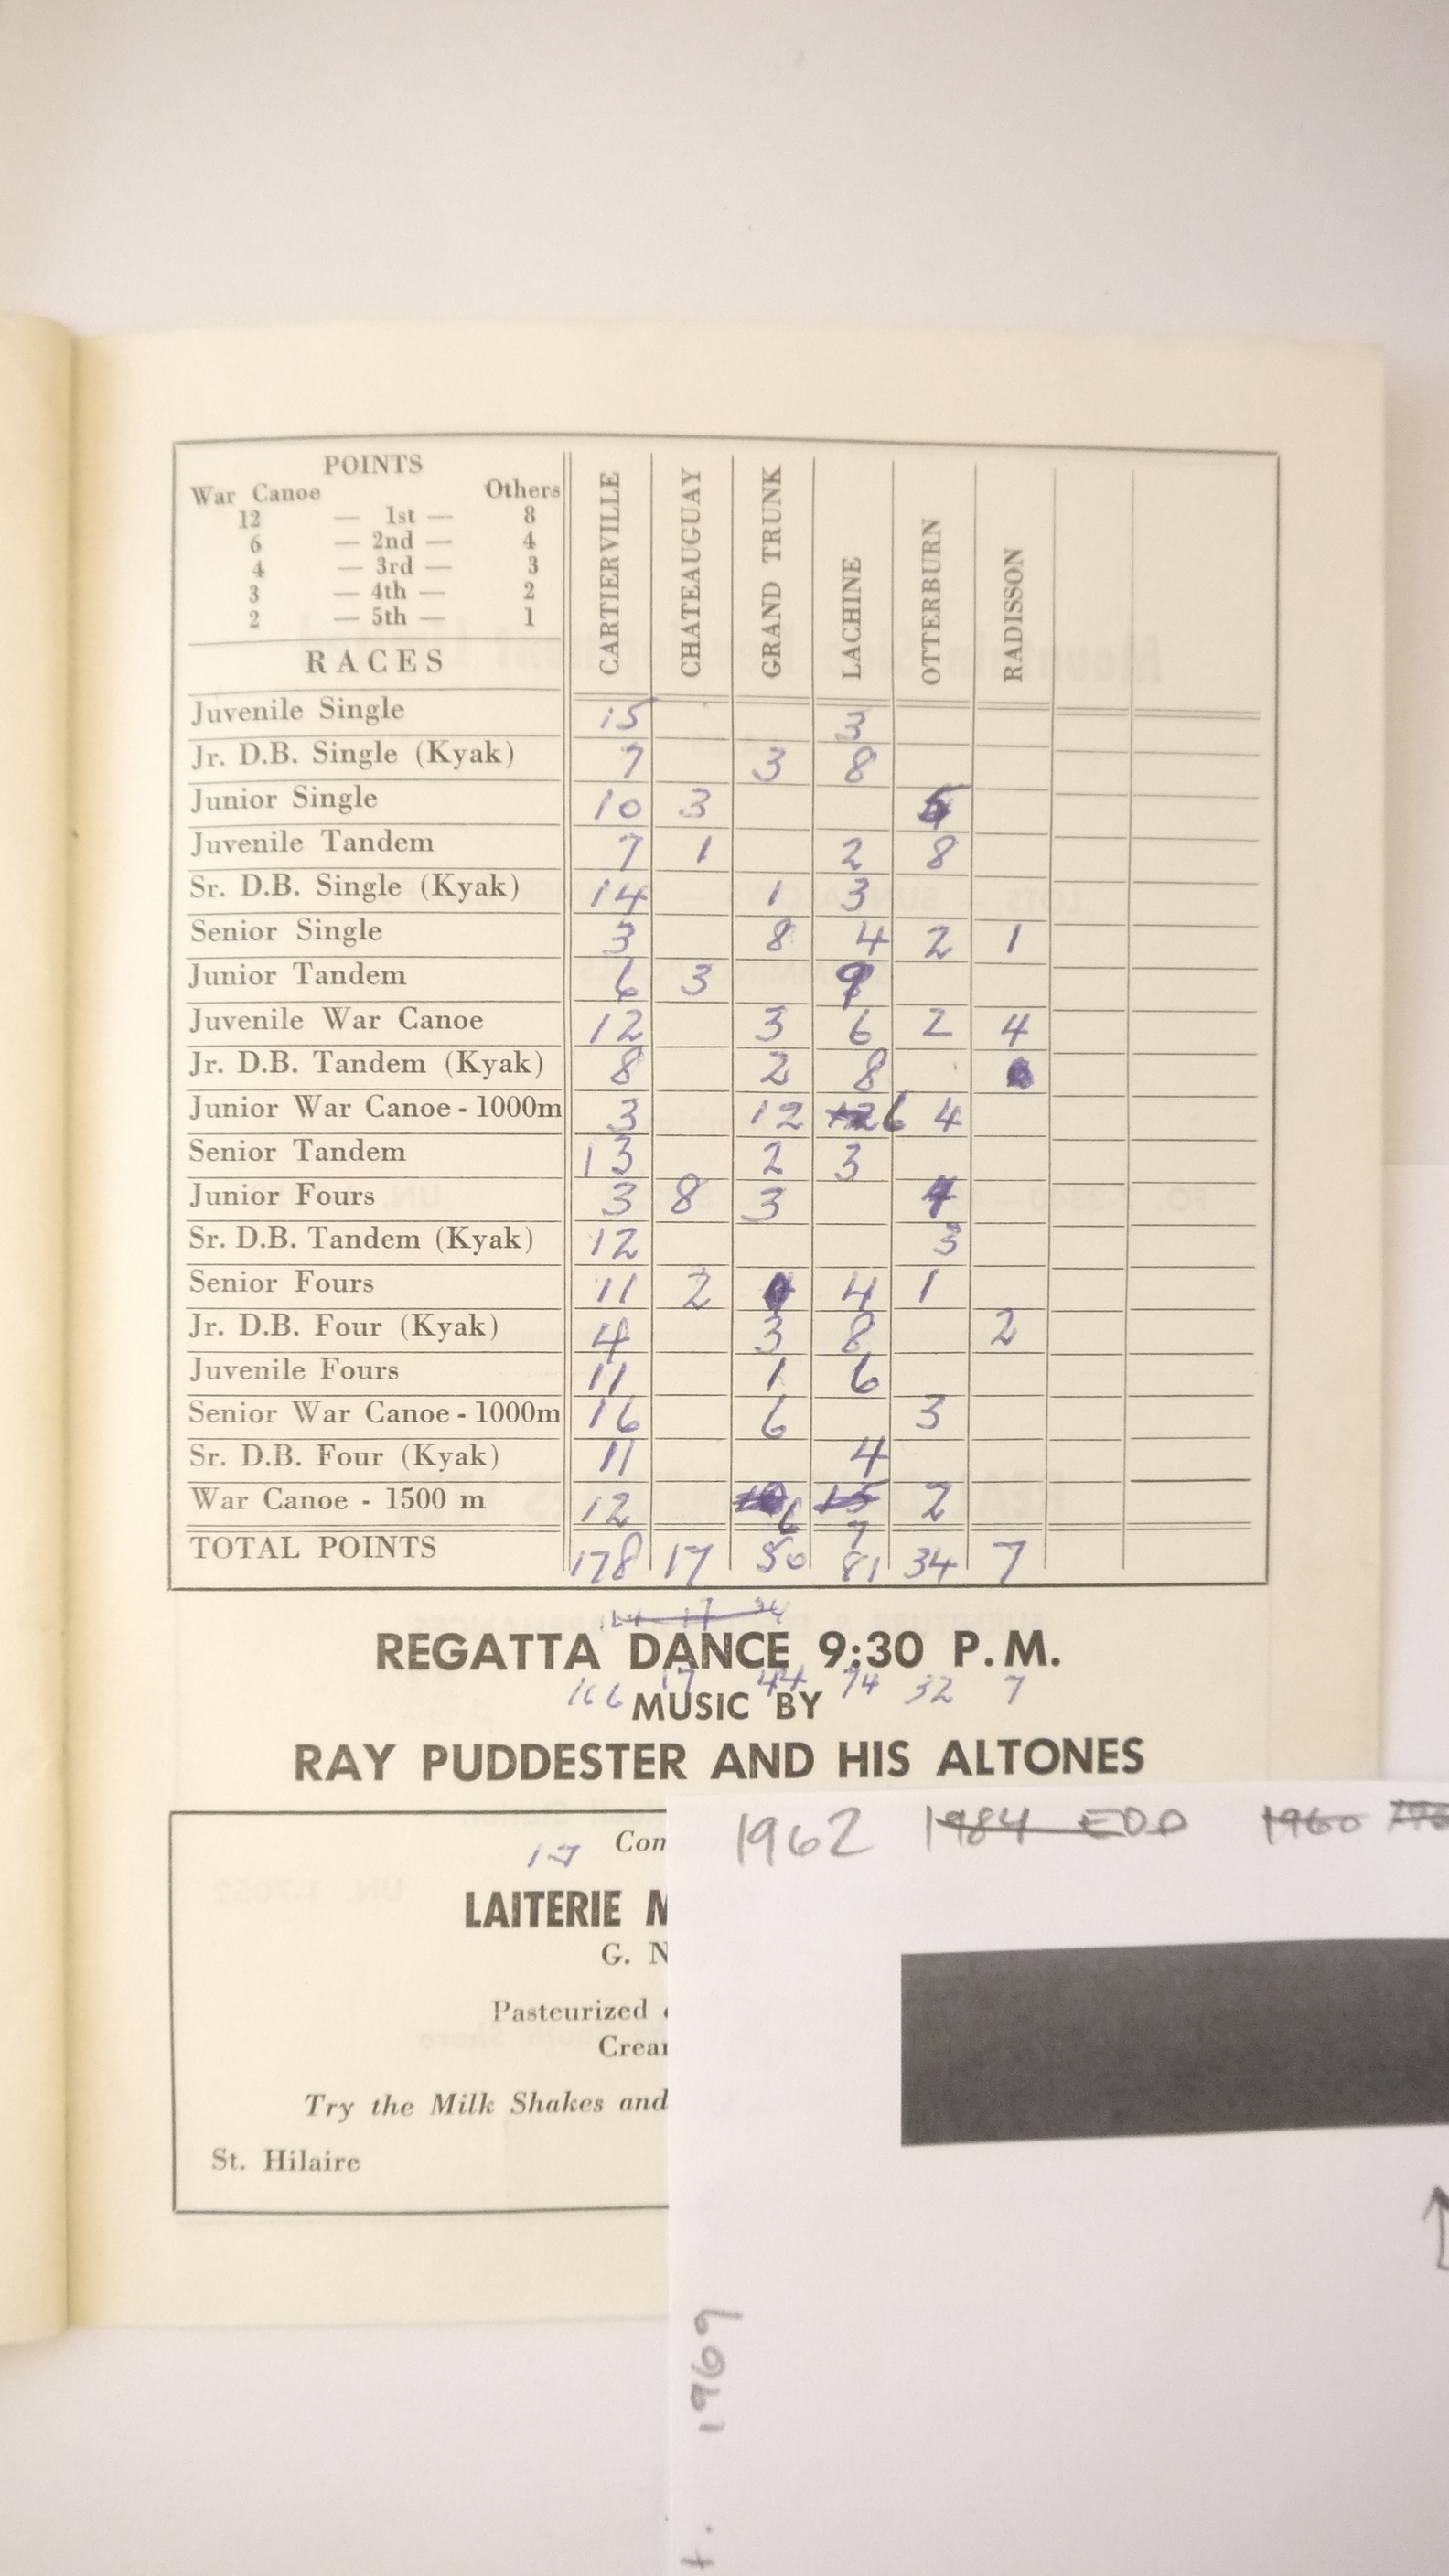 POINTS
War Canoe Others
12 — 1st — 8
6 — 2nd — 4
4 — 3rd — 3
3 — 4th — 2
2 — 5th — 1
RACES CARTIERVILLE CHATEAUGUAY GRAND TRUNK LACHINE OTTERBURN RADISSON
Juvenile Single 15 3
Jr. D.B. Single (Kyak) 7 3 8
Junior Single 10 3 5
Juvenile Tandem 7 1 2 8
Sr. D.B. Single (Kyak) 14 1 3
Senior Single 3 8 4 2 1
Junior Tandem 6 3 9
Juvenile War Canoe 12 3 6 2 4
Jr. D.B. Tandem (Kyak) 8 2 8
Junior War Canoe - 1000m 3 12 12 6 4
Senior Tandem 13 2 3
Junior Fours 3 8 3 4
Sr. D.B. Tandem (Kyak) 12 3
Senior Fours 11 2 4 1
Jr. D.B. Four (Kyak) 4 3 8 2
Juvenile Fours 11 1 6
Senior War Canoe - 1000m 16 6 3
Sr. D.B. Four (Kyak) 11 4
War Canoe - 1500 m 12 6 15 7 2
TOTAL POINTS 178 17 50 81 34 7
17 34
REGATTA DANCE 9:30 P.M.
166 17 44 74 32 7
MUSIC BY
RAY PUDDESTER AND HIS ALTONES
1962 1984 EDD 1960
17 Con
LAITERIE M
G. N
Pasteurized
Crea
Try the Milk Shakes and
St. Hilaire
1969